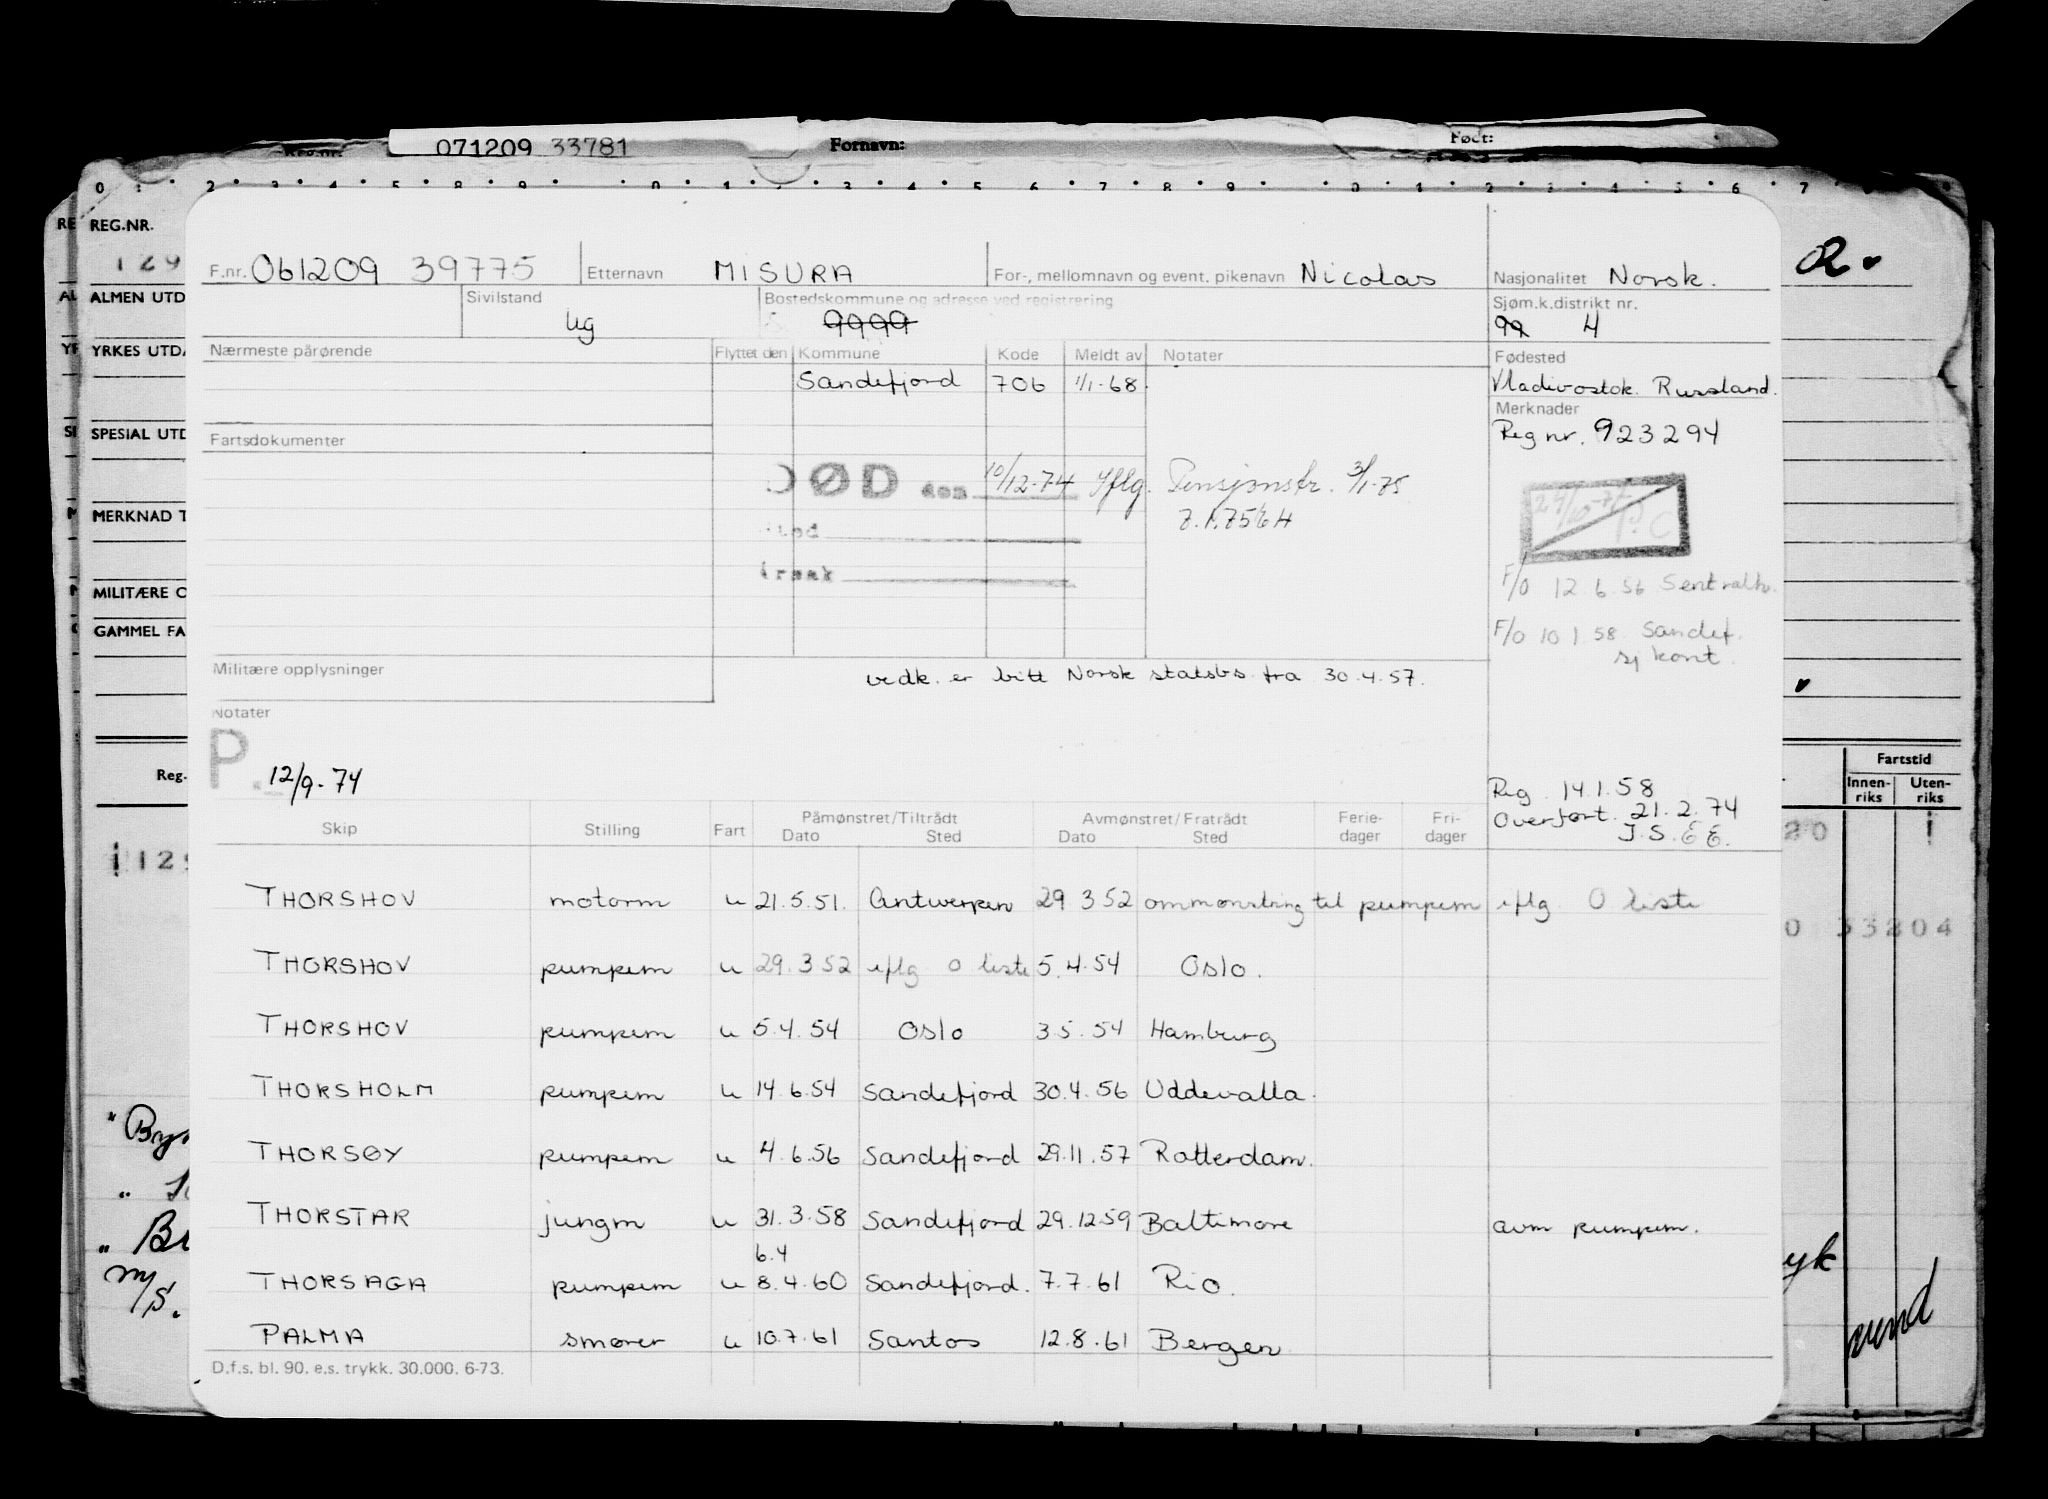 Reg.nr. 071209 33781 Fornavn: Født:
0 1 2 3 4 5 8 9 0 1 2 3 4 5 6 7 8 9 0 1 2 3 4 5 6 7
RE REG.NR.
129
F.nr. 061209 39775 Etternavn MISURA For-, mellomnavn og event. pikenavn Nicolas Nasjonalitet Norsk.
ALMEN UTD
Sivilstand ug Bostedskommune og adresse ved registrering 9999 Sjøm.k.distrikt nr. 99 4
YRKES UTD
Nærmeste pårørende Flyttet den Kommune Kode Meldt av Notater Fødested
Sandefjord 706 1/1-68. Vladivostok. Russland.
Merknader
SPESIAL UTD Reg nr. 923294
Fartsdokumenter
DØD den 10/12-74 Iflg. Pensjonstr. 3/1-75
MERKNAD T
7.1.75 GH
sted
årsak
MILITÆRE O
F/O 12.6.56 Sentralk.
GAMMEL FA
F/O 10.1.58. Sandef.
sj kont.
Militære opplysninger
vedk. er blitt Norsk statsbs. fra 30.4.57.
Notater
P. 12/9-74
Reg.
Fartstid
Innen-riks Uten-riks
Reg. 14.1.58
Overført. 21.2.74
I.S.EE.
Skip Stilling Fart Påmønstret/Tiltrådt Dato Sted Avmønstret/Fratrådt Dato Sted Ferie-dager Fri-dager
20 1
THORSHOV motorm u 21.5.51. Antwerpen 29 3 52 ommønstring til pumpem iflg O liste
0 33204
THORSHOV pumpem u 29.3 52 iflg O liste 5.4.54 Oslo.
THORSHOV pumpem u 5.4.54 Oslo 3.5.54 Hamburg
THORSHOLM pumpem u 14.6.54 Sandefjord 30.4.56 Uddevalla.
THORSØY pumpem u 4.6.56 Sandefjord 29.11.57 Rotterdam.
THORSTAR jungm u 31.3.58 Sandefjord 29.12.59 Baltimore avm pumpem.
6.4
THORSAGA pumpem u 8.4.60 Sandefjord. 7.7.61 Rio.
M/S.
PALMA smører u 10.7.61 Santos 12.8.61 Bergen
D.f.s. bl. 90. e.s. trykk. 30.000. 6-73.